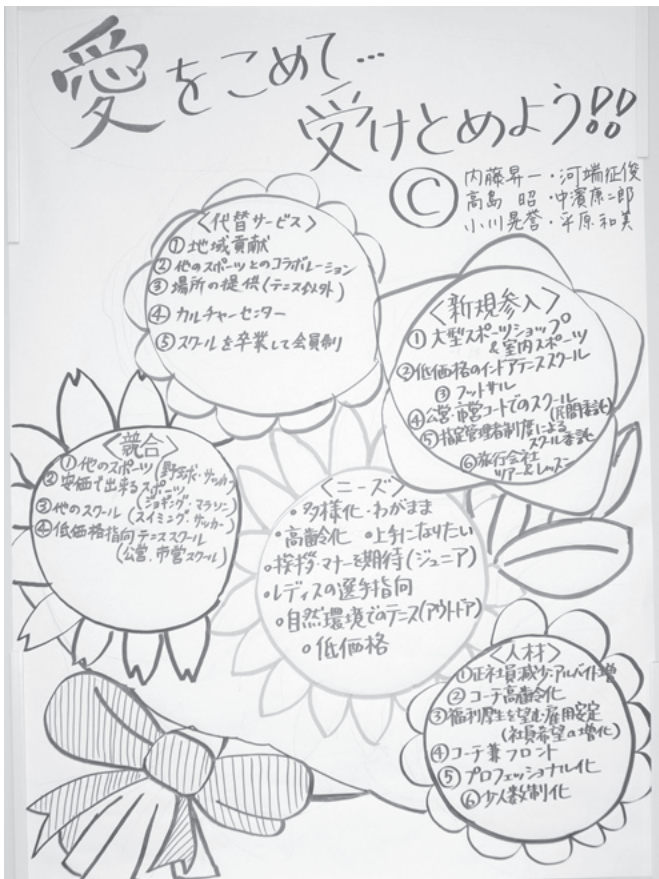 愛をこめて…
受けとめよう!!
Ⓒ
内藤昇一・河端征俊
高島 昭・中濱康二郎
小川晃誉・平原和美
〈代替サービス〉
①地域貢献
②他のスポーツとのコラボレーション
③場所の提供(テニス以外)
④カルチャーセンター
⑤スクールを卒業して会員制
〈新規参入〉
①大型スポーツショップ
&室内スポーツ
②低価格のインドアテニススクール
③フットサル
④公営・市営コートでのスクール
(民間委託)
⑤指定管理者制度による
スクール委託
⑥旅行会社
ツアー&レッスン
〈競合〉
①他のスポーツ(野球・サッカー
②安価で出来るスポーツ
(ジョギング・マラソン)
③他のスクール(スイミング・サッカー)
④低価格指向テニススクール
(公営・市営スクール)
〈ニーズ〉
・多様化・わがまま
・高齢化 ・上手になりたい
・挨拶・マナーを期待(ジュニア)
・レディスの選手指向
・自然環境でのテニス(アウトドア)
・低価格
〈人材〉
①正社員減少・アルバイト増
②コーチ高齢化
③福利厚生を望む・雇用安定
(社員希望の増化)
④コーチ兼フロント
⑤プロフェッショナル化
⑥少人数制化